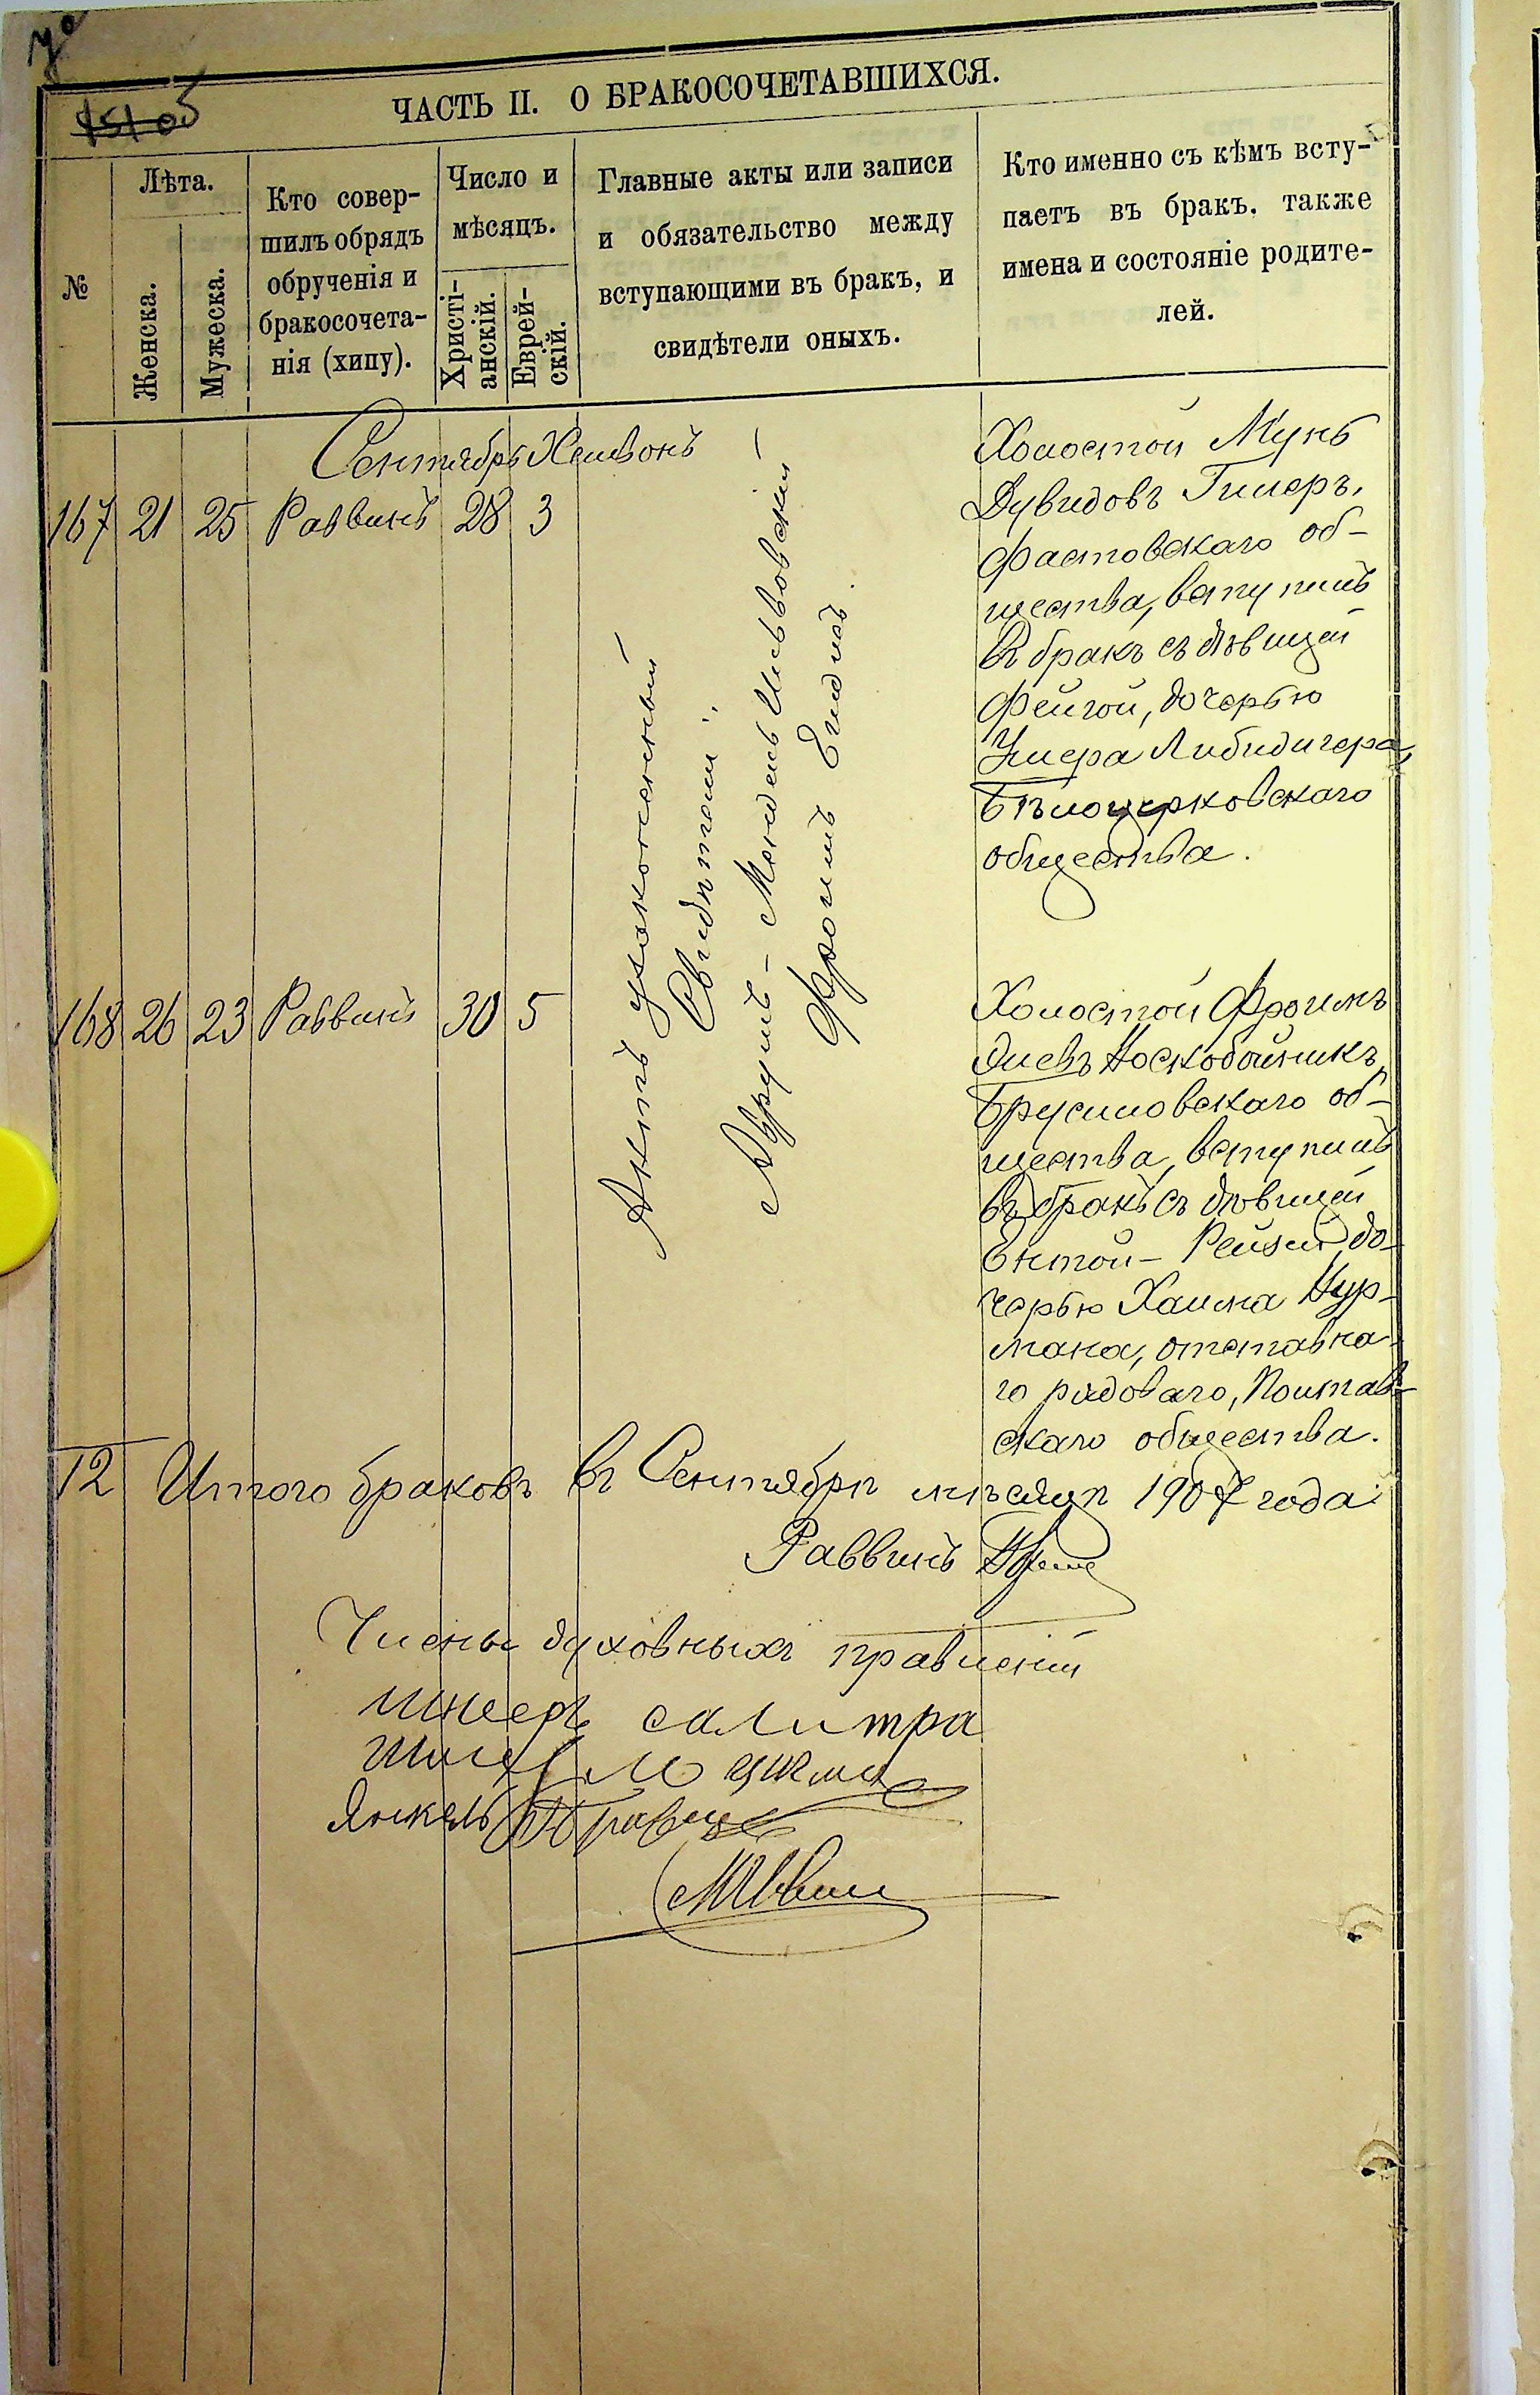 ЧАСТЬ II. О БРАКОСОЧЕТАВШИХСЯ.
№
Лѣта.
Женска.
Мужеска.
Кто совер-
шилъ обрядъ
обрученія и
бракосочета-
нія (хипу).
Число и
мѣсяцъ.
Христі-
анскій.
Еврей-
скій.
Главные акты или записи
и обязательство между
вступающими въ бракъ, и
свидѣтели оныхъ.
Кто именно съ кѣмъ всту-
паетъ въ бракъ, также
имена и состояніе родите-
лей.
Сентябрь Хешвонъ
167 21 25 Раввинъ 28 3
Актъ узаконенный
Свидѣтели:
Аврумъ-Мендель Ильвовскій
Фроимъ Ендлъ.
Холостой Мунь
Дувидовъ Гилеръ,
Фастовскаго об-
щества, вступилъ
въ бракъ съ дѣвицей
Фейгой, дочерью
Умера Либидигера,
Бѣлоцерковскаго
общества.
168 26 23 Раввинъ 30 5
Холостой Фроимъ
Эліевъ Воскобойникъ,
Брусиловскаго об-
щества, вступилъ
въ бракъ съ дѣвицей
Ентой-Рейзей, до-
черью Хаима Фур-
мана, отставна-
го рядоваго, Полтав-
скаго общества.
12 Итого браковъ въ Сентябрѣ мѣсяцѣ 1907 года
Раввинъ
Члены духовныхъ правленій
салитра
Янкель